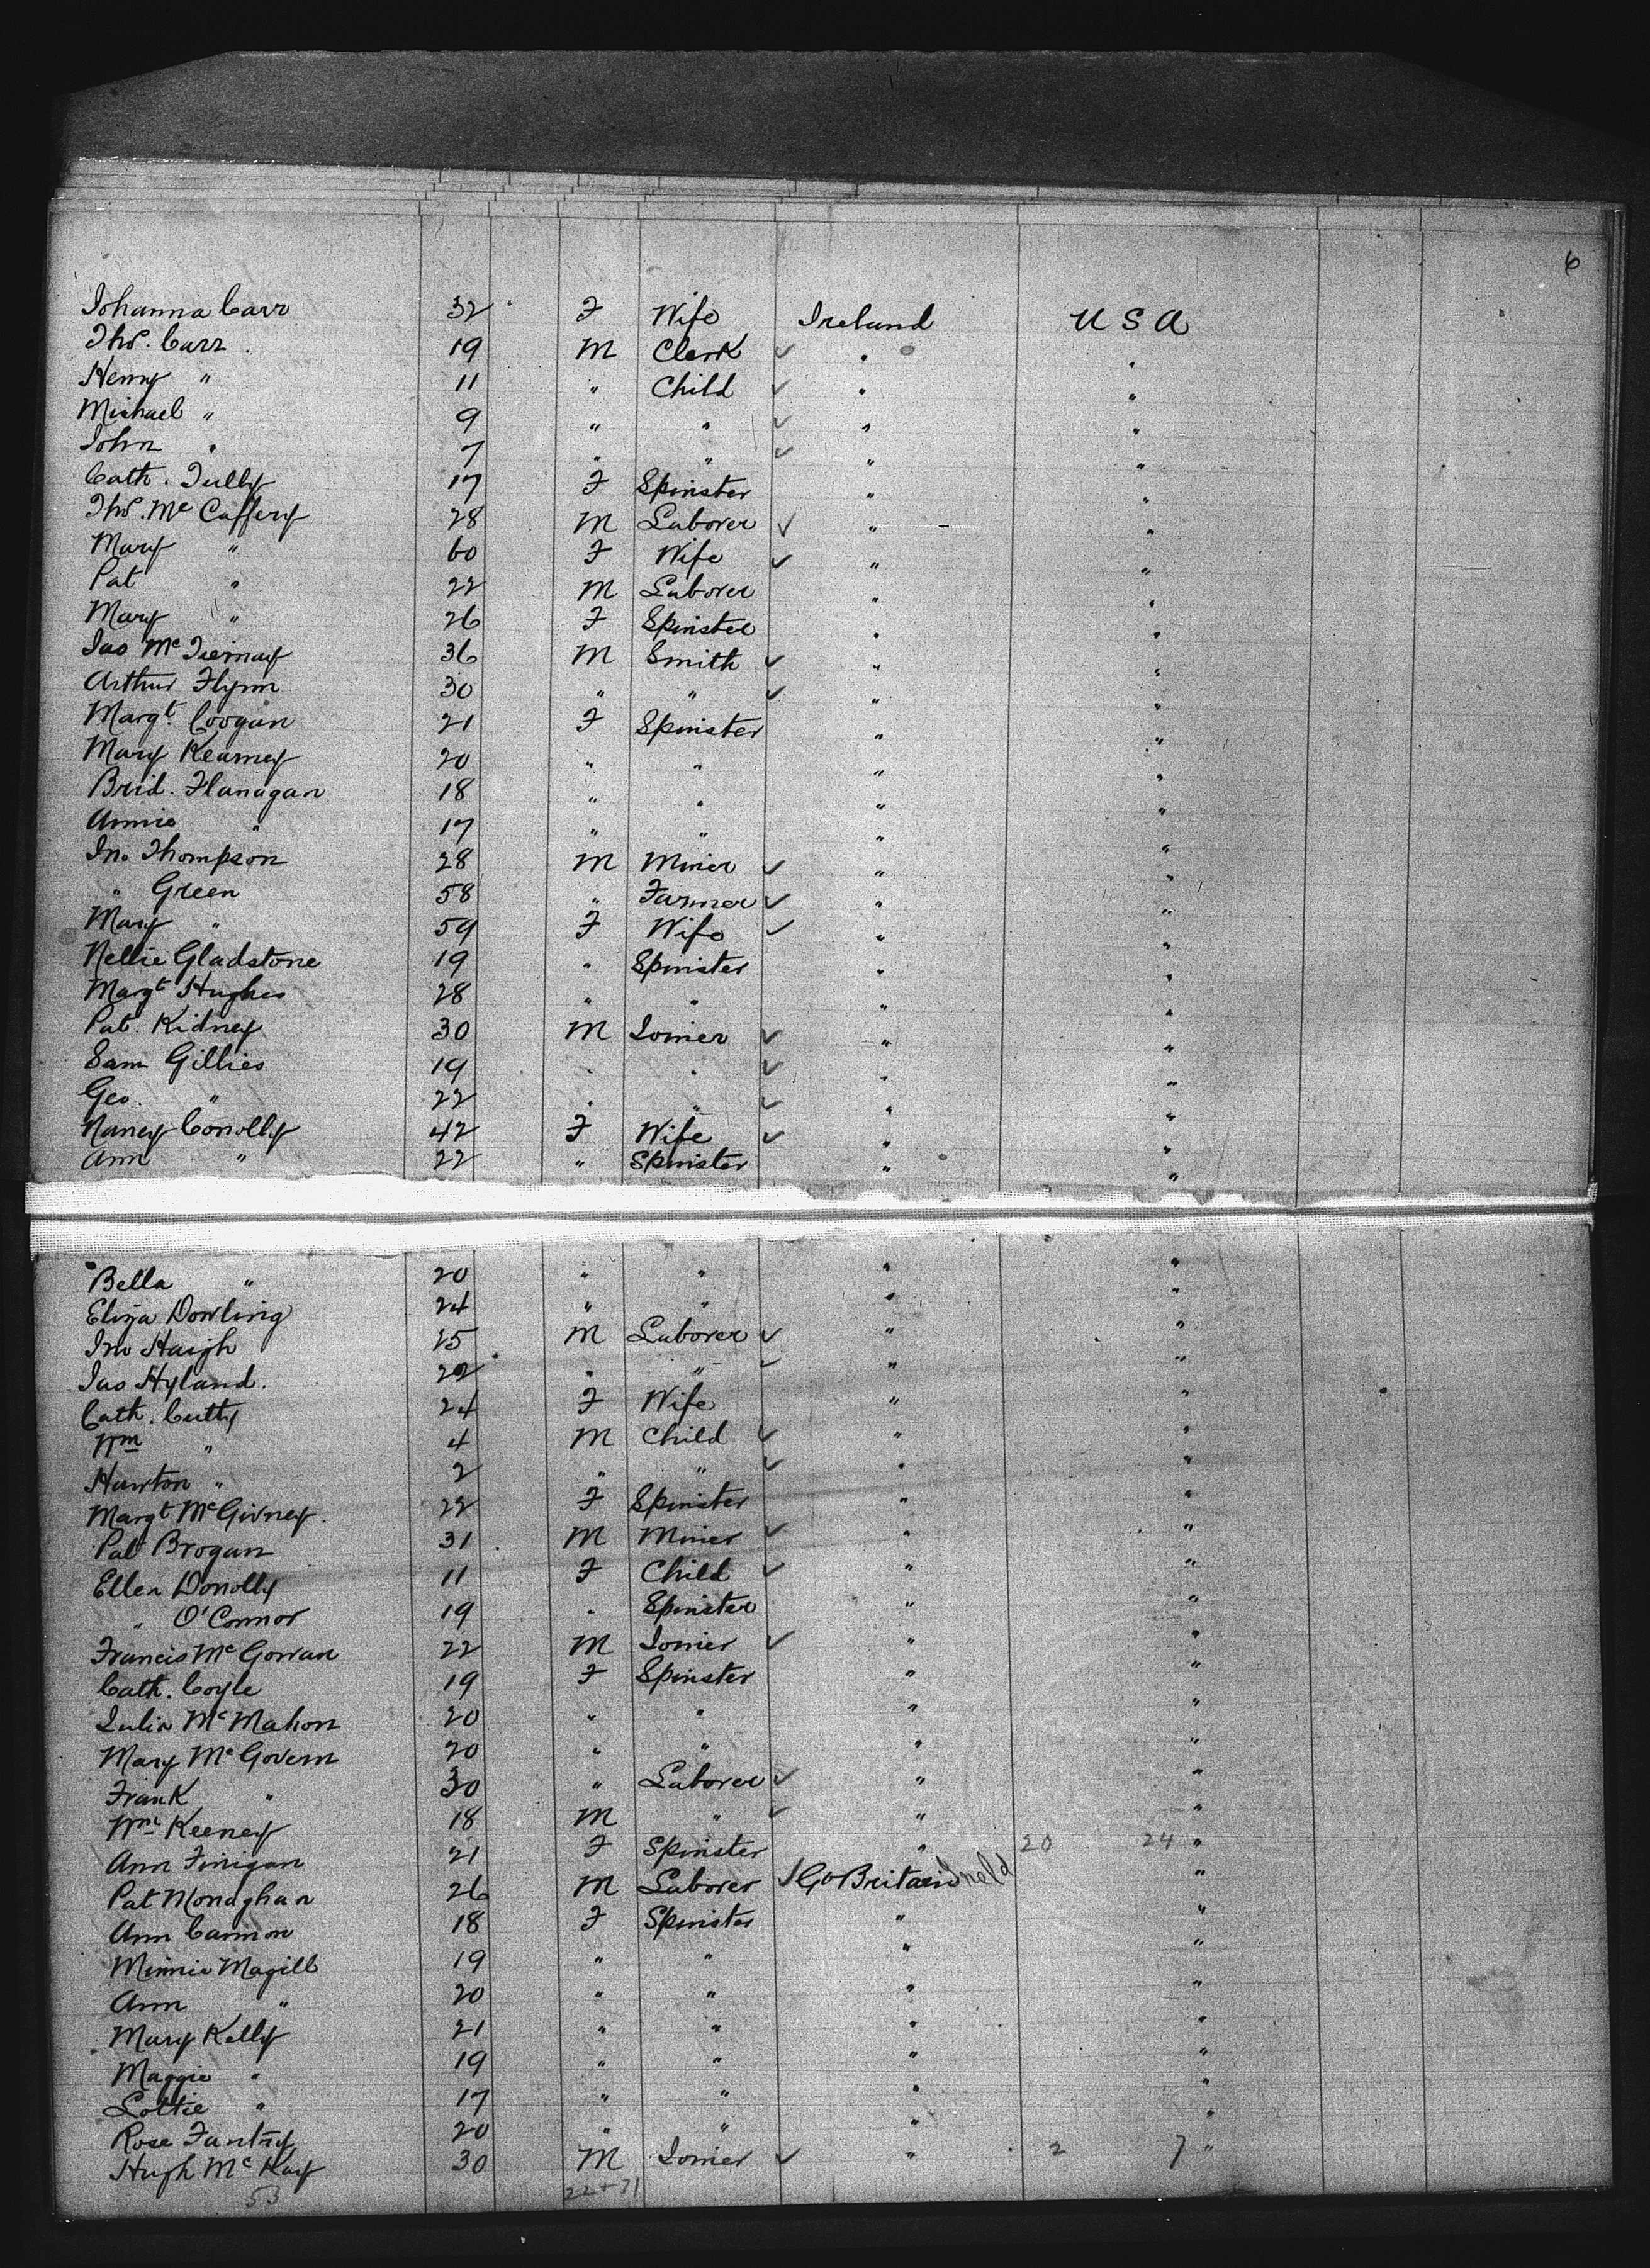 6
Johanna Carr 32 F Wife Ireland U S A
Thos. Carr 19 M Clerk ✓ " "
Henry " 11 " Child ✓ " "
Michael " 9 " " ✓ " "
John " 7 " " ✓ " "
Cath. Tully 17 F Spinster " "
Thos. Mc Caffery 28 M Laborer ✓ " "
Mary " 60 F Wife ✓ " "
Pat " 22 M Laborer " "
Mary " 26 F Spinster " "
Jas Mc Tiernay 36 M Smith ✓ " "
Arthur Flynn 30 " " ✓ " "
Margt. Coogan 21 F Spinster " "
Mary Kearney 20 " " " "
Brid. Flanagan 18 " " " "
Annie " 17 " " " "
Jno Thompson 28 M Miner ✓ " "
" Green 58 " Farmer ✓ " "
Mary " 59 F Wife ✓ " "
Nellie Gladstone 19 " Spinster " "
Margt Hughes 28 " " " "
Pat. Kidney 30 M Joiner ✓ " "
Sam Gillies 19 " " ✓ " "
Geo. " 22 " " ✓ " "
Nancy Conolly 42 F Wife ✓ " "
Ann " 22 " Spinster " "
Bella " 20 " " " "
Eliza Dowling 24 " " " "
Jno Haigh 25 M Laborer ✓ " "
Jas Hyland. 22 " " ✓ " "
Cath. Cutty 24 F Wife " "
Wm " 4 M Child ✓ " "
" 2 " " ✓ " "
Margt McGivney. 22 F Spinster " "
Pat Brogan 31 M Miner ✓ " "
Ellen Donolly 11 F Child ✓ " "
" O'Connor 19 " Spinster " "
Francis Mc Gowan 22 M Joiner ✓ " "
Cath. Coyle 19 F Spinster " "
Julia Mc Mahon 20 " " " "
Mary Mc Govern 20 " " " "
Frank " 30 " Laborer ✓ " "
Wm Keeney 18 M " ✓ " "
Ann Finigan 21 F Spinster " 20 24 "
Pat Monaghan 26 M Laborer ✓ Gt Britain Ireld "
Ann Cannon 18 F Spinster " "
Minnie Magill 19 " " " "
Ann " 20 " " " "
Mary Kelly 21 " " " "
Maggie " 19 " " " "
Lottie " 17 " " " "
Rose 20 " " " "
Hugh Mc Kay 30 M Joiner ✓ " 2 7 "
53 22 + 31